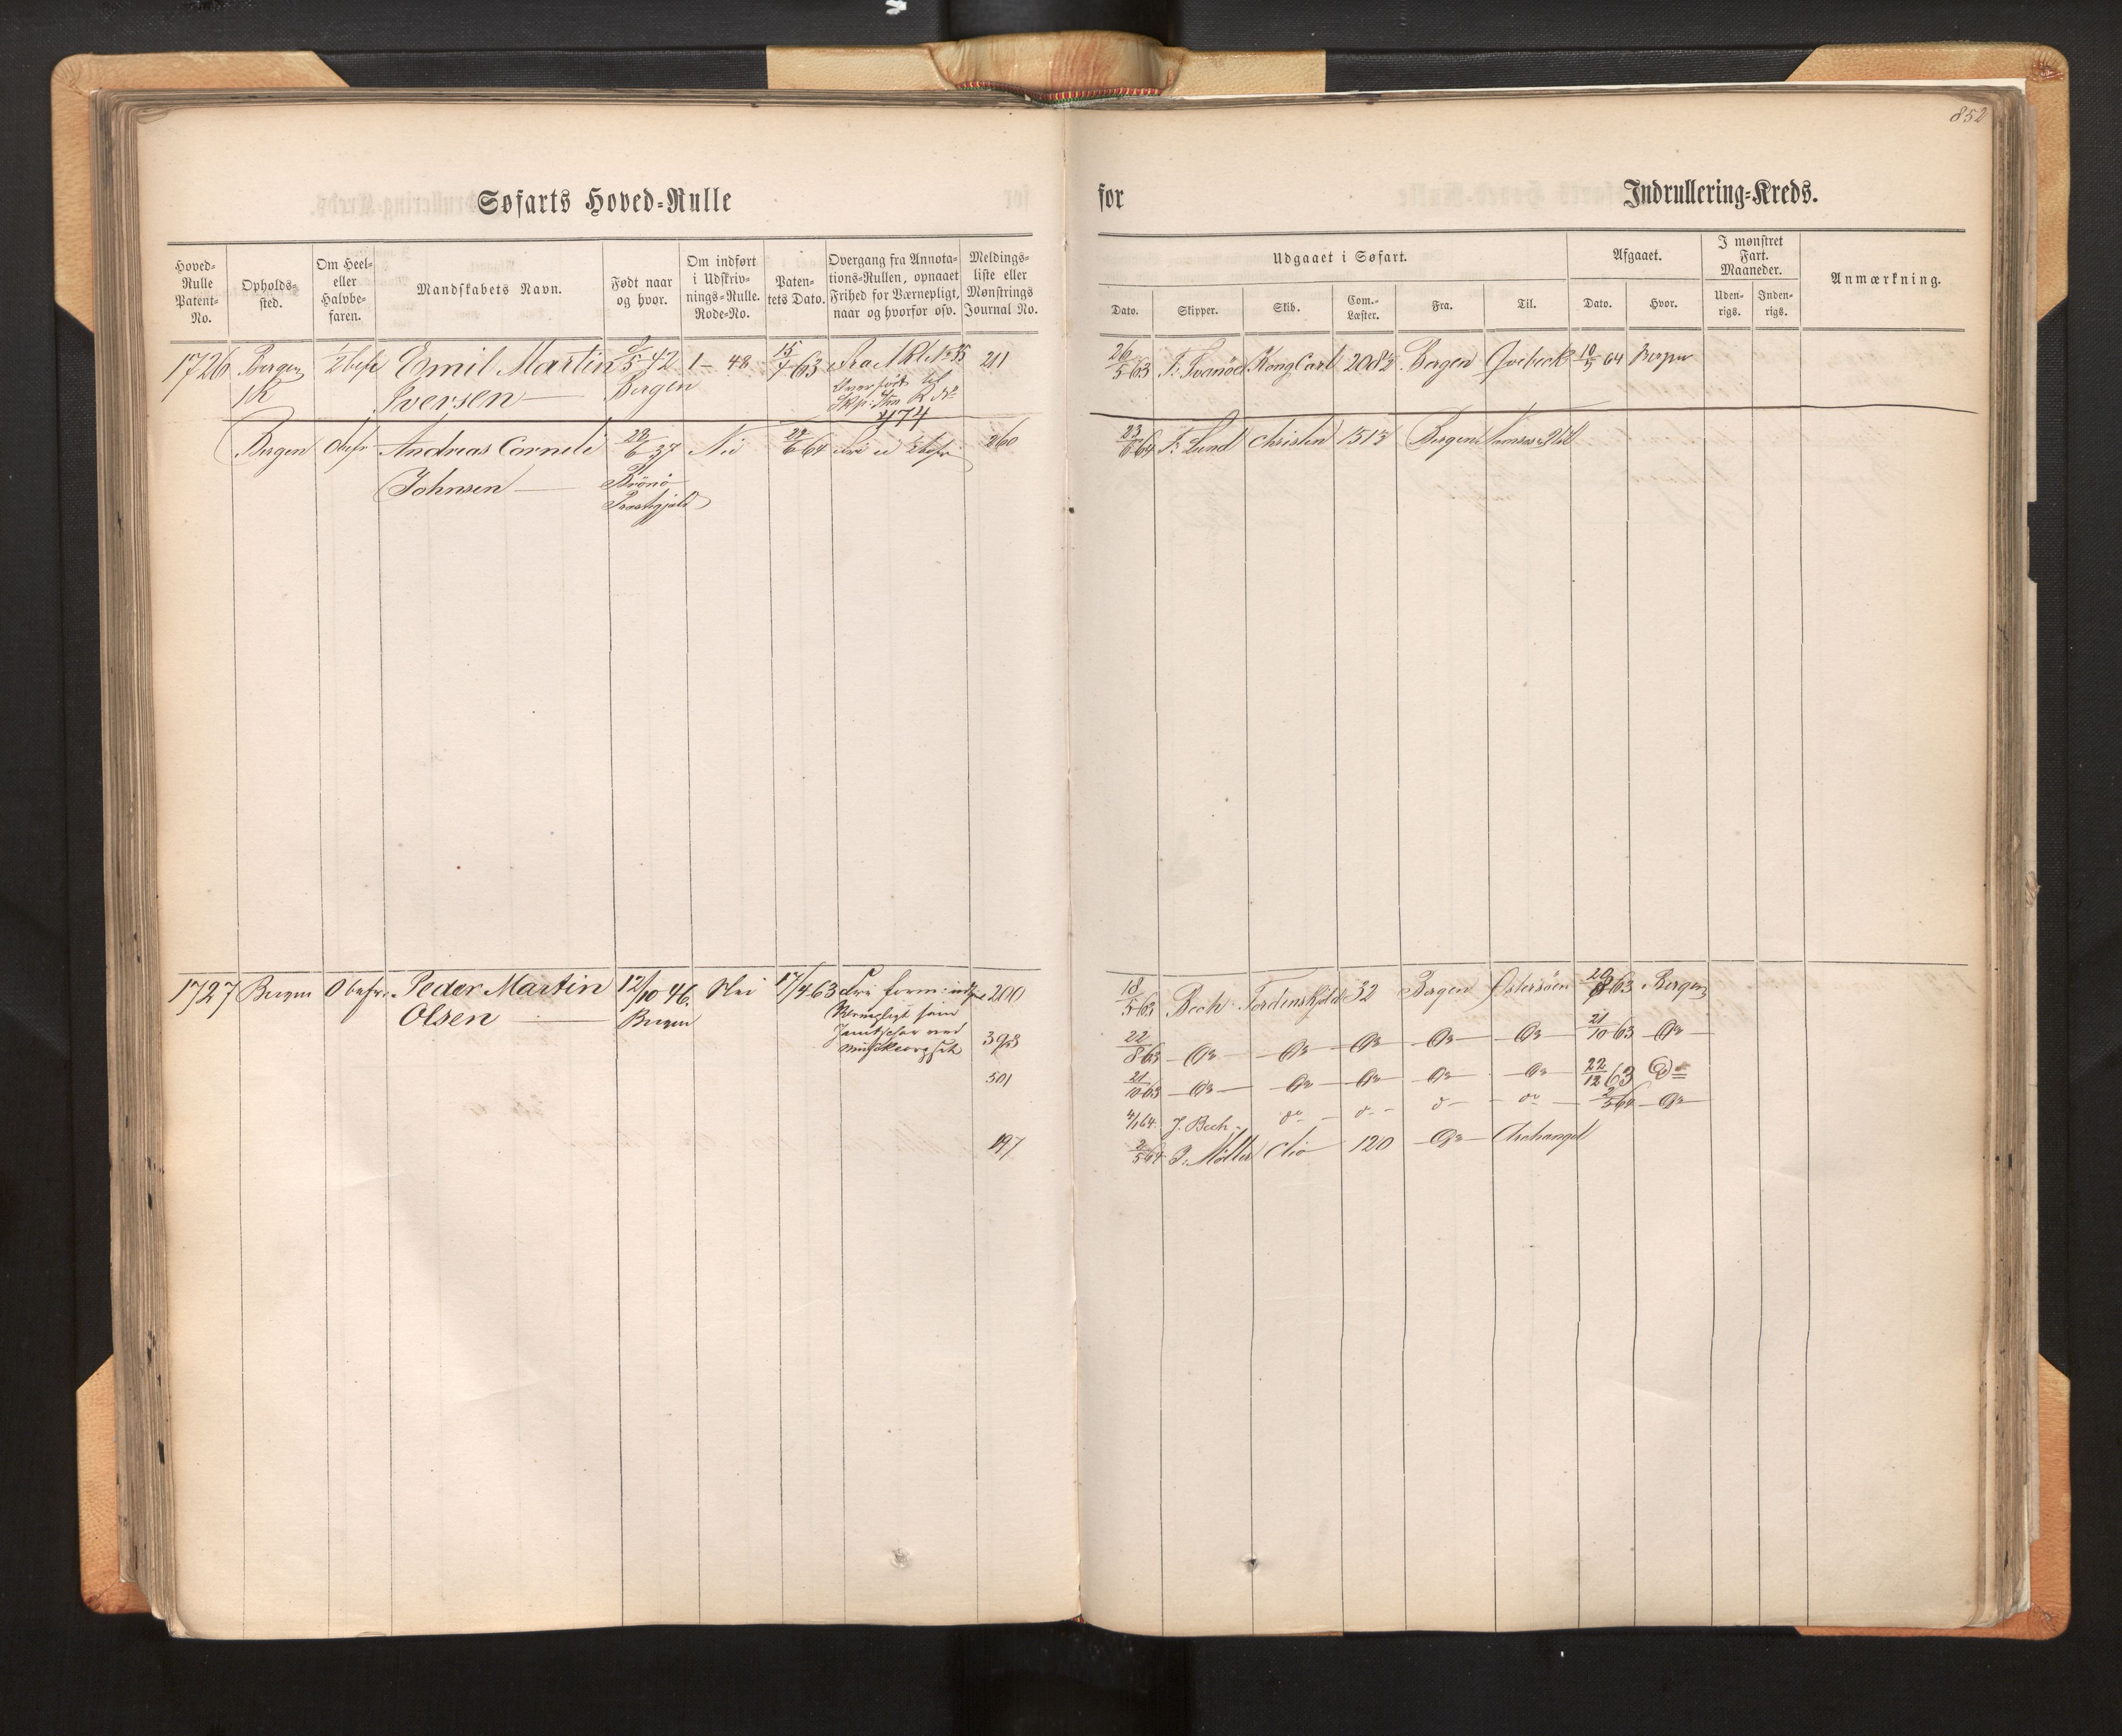 852
Søfarts Hoved-Rulle
for Indrullering-Kreds.
Hoved-Rulle Patent-No.
Opholds-sted.
Om Heel- eller Halvbe-faren.
Mandskabets Navn.
Født naar og hvor.
Om indført i Udskriv-nings-Rulle. Rode-No.
Paten-tets Dato.
Overgang fra Annota-tions-Rullen, opnaaet Frihed for Værnepligt, naar og hvorfor osv.
Meldings-liste eller Mønstrings Journal No.
Udgaaet i Søfart.
Afgaaet.
I mønstret Fart. Maaneder.
Anmærkning.
Dato. Skipper. Skib. Com.-Læster. Fra. Til. Dato. Hvor. Uden-rigs. Inden-rigs.
1726 Bergen 1/2 befr Emil Martin 5 42 1 - 48 15/7 63 211
Iversen Bergen
474
26/5 63 Kong Carl 208 1/2 Bergen 64
Bergen Andreas Corneli 28/6 37 Nei 64 260
Johnsen Brönö
Præstegjeld
23/6 64 Lund Christen 151 1/2 Bergen
1727 Bergen Peder Martin 12/10 46. Nei 17/4 63 200
Olsen Bergen
398
501
197
18/5 63 Bech Tordenskjold 32 Bergen Østersöen 63 Bergen
22/8 63 - Do - Do - Do - Do - Do 21/10 63 - Do -
21/10 63 - Do - Do - Do - Do - Do 22/12 63 Do
4/1 64. J. Bech - do - do - do - do 64 - Do -
2/5 64 Möller Clio 120 - Do - Archangel